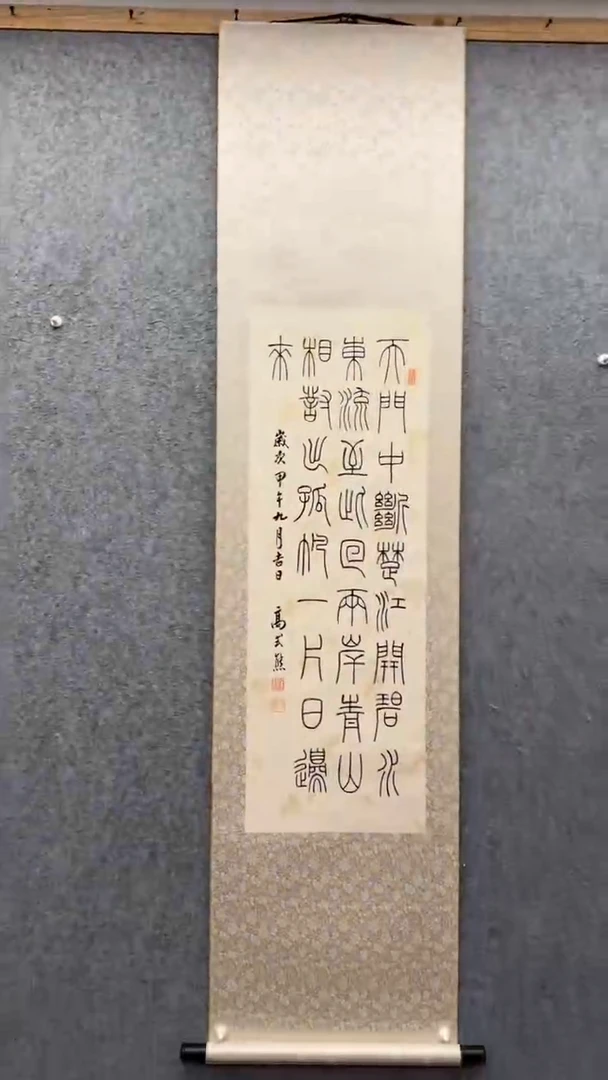 天門中斷楚江開碧水
東流至此回兩岸青山
相對出孤帆一片日邊
來
歲次甲午九月吉日 高式熊